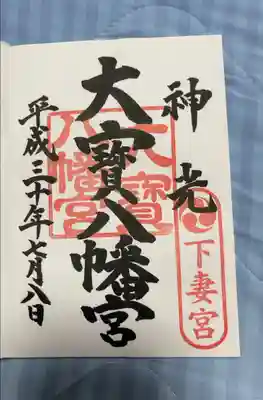 神光
下妻宮
大寶八幡宮
大寶八幡宮
平成三十年七月八日